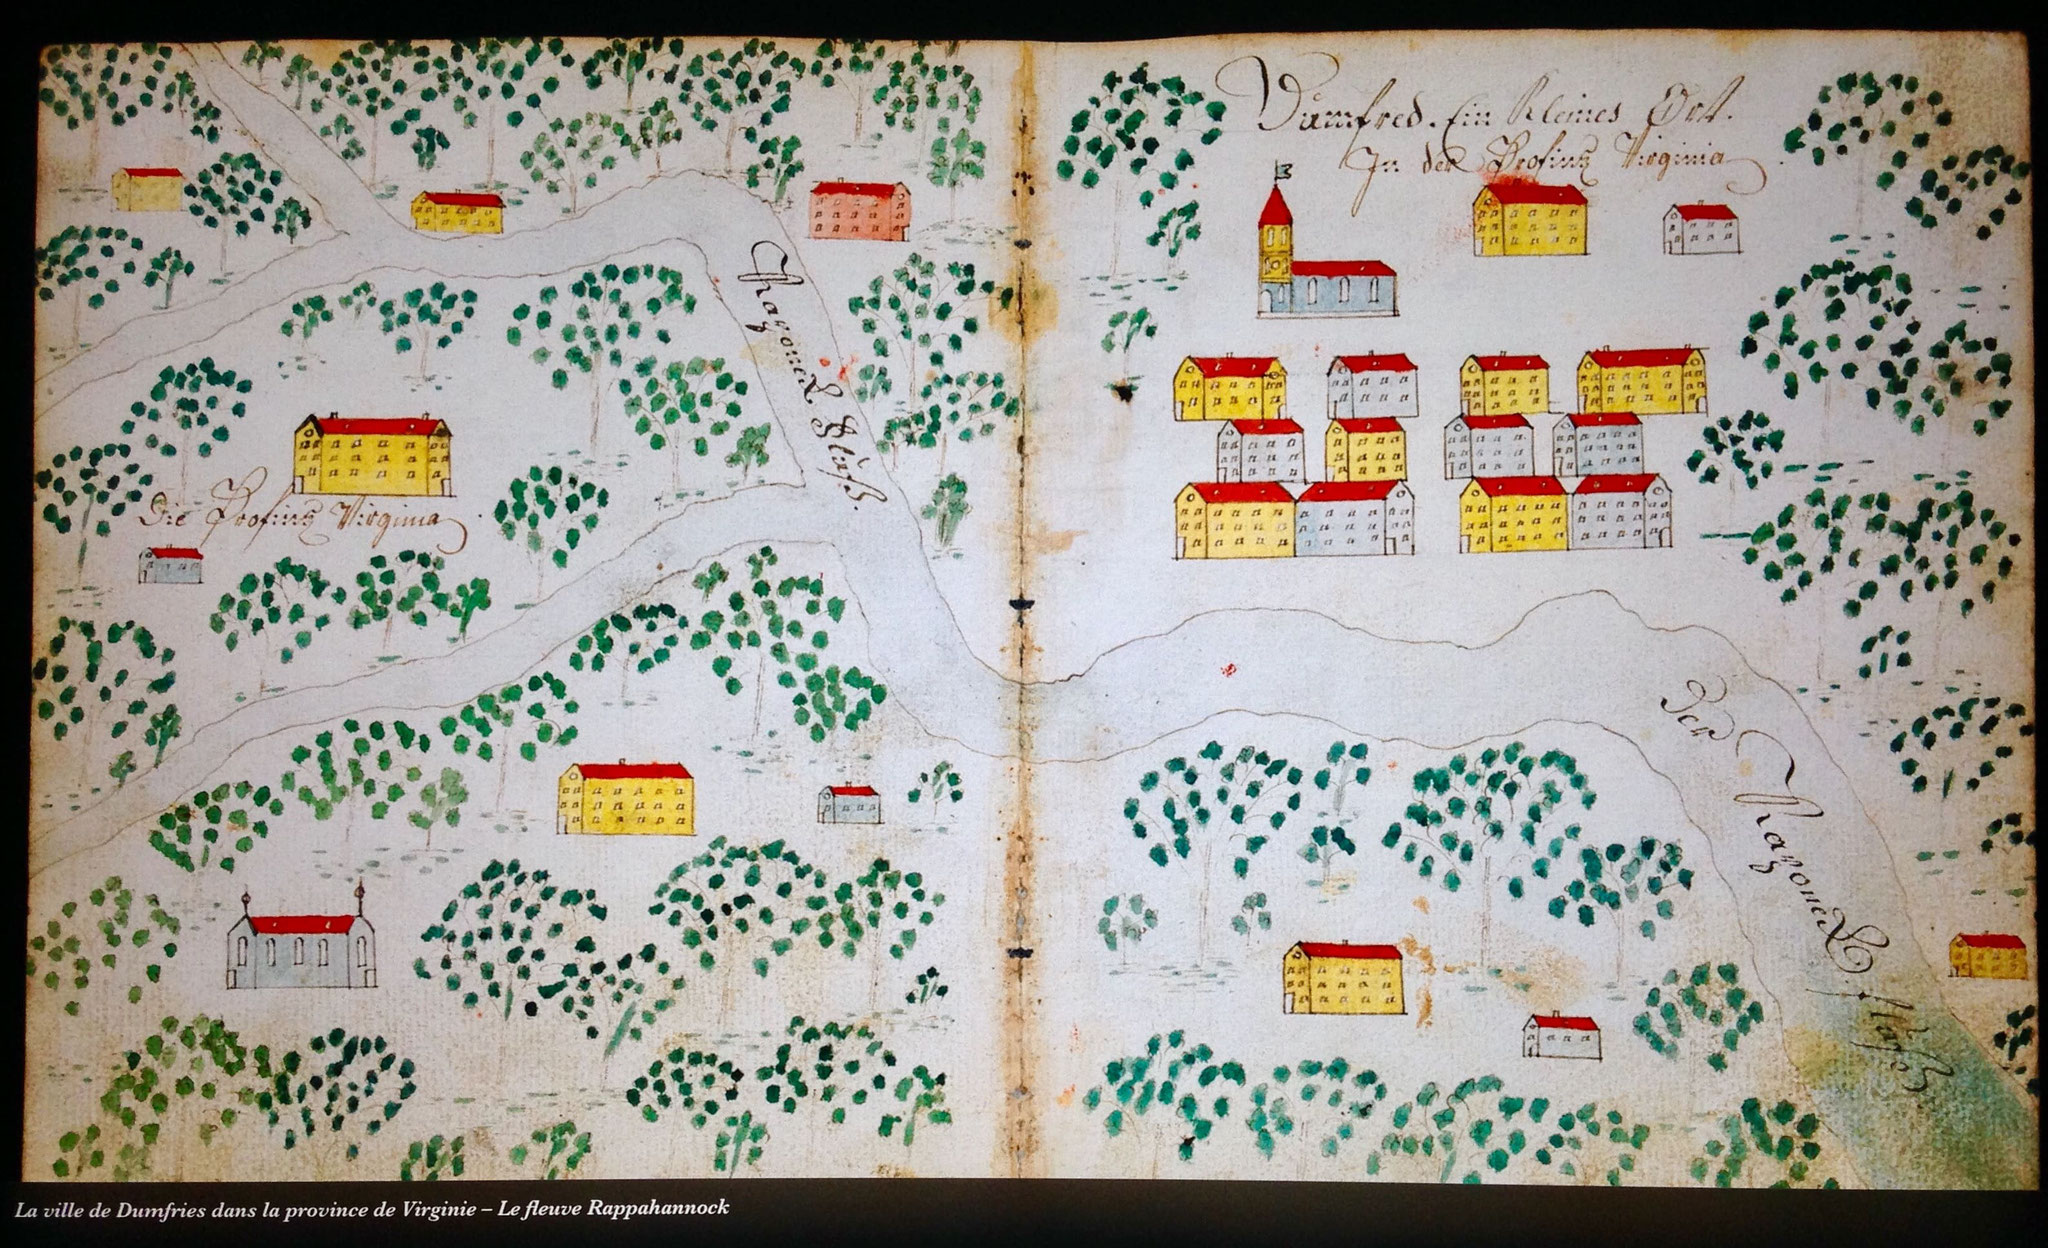 Dumfred. Ein Kleines Ort.
In der Profintz Virginia
Ragonick Flüß.
Die Profintz Virginia.
Der Ragonick Flüß
La ville de Dumfries dans la province de Virginie – Le fleuve Rappahannock